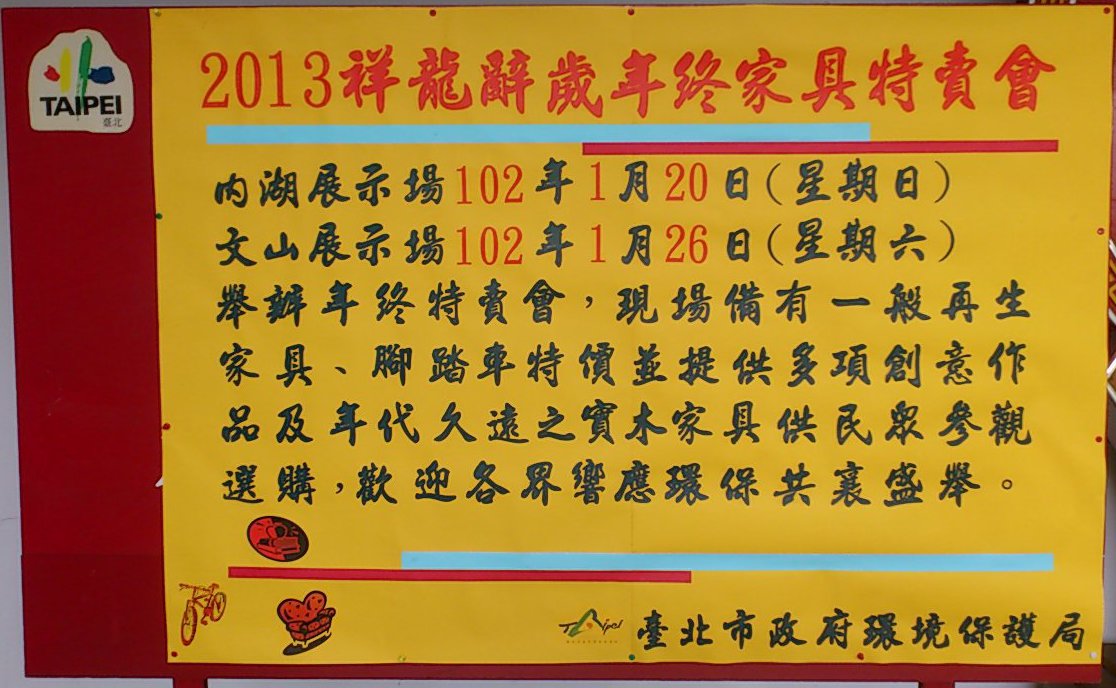 TAIPEI
臺北
2013祥龍辭歲年終家具特賣會
內湖展示場102年1月20日(星期日)
文山展示場102年1月26日(星期六)
舉辦年終特賣會，現場備有一般再生
家具、腳踏車特價並提供多項創意作
品及年代久遠之實木家具供民眾參觀
選購，歡迎各界響應環保共襄盛舉。
Taipei
臺北市政府環境保護局